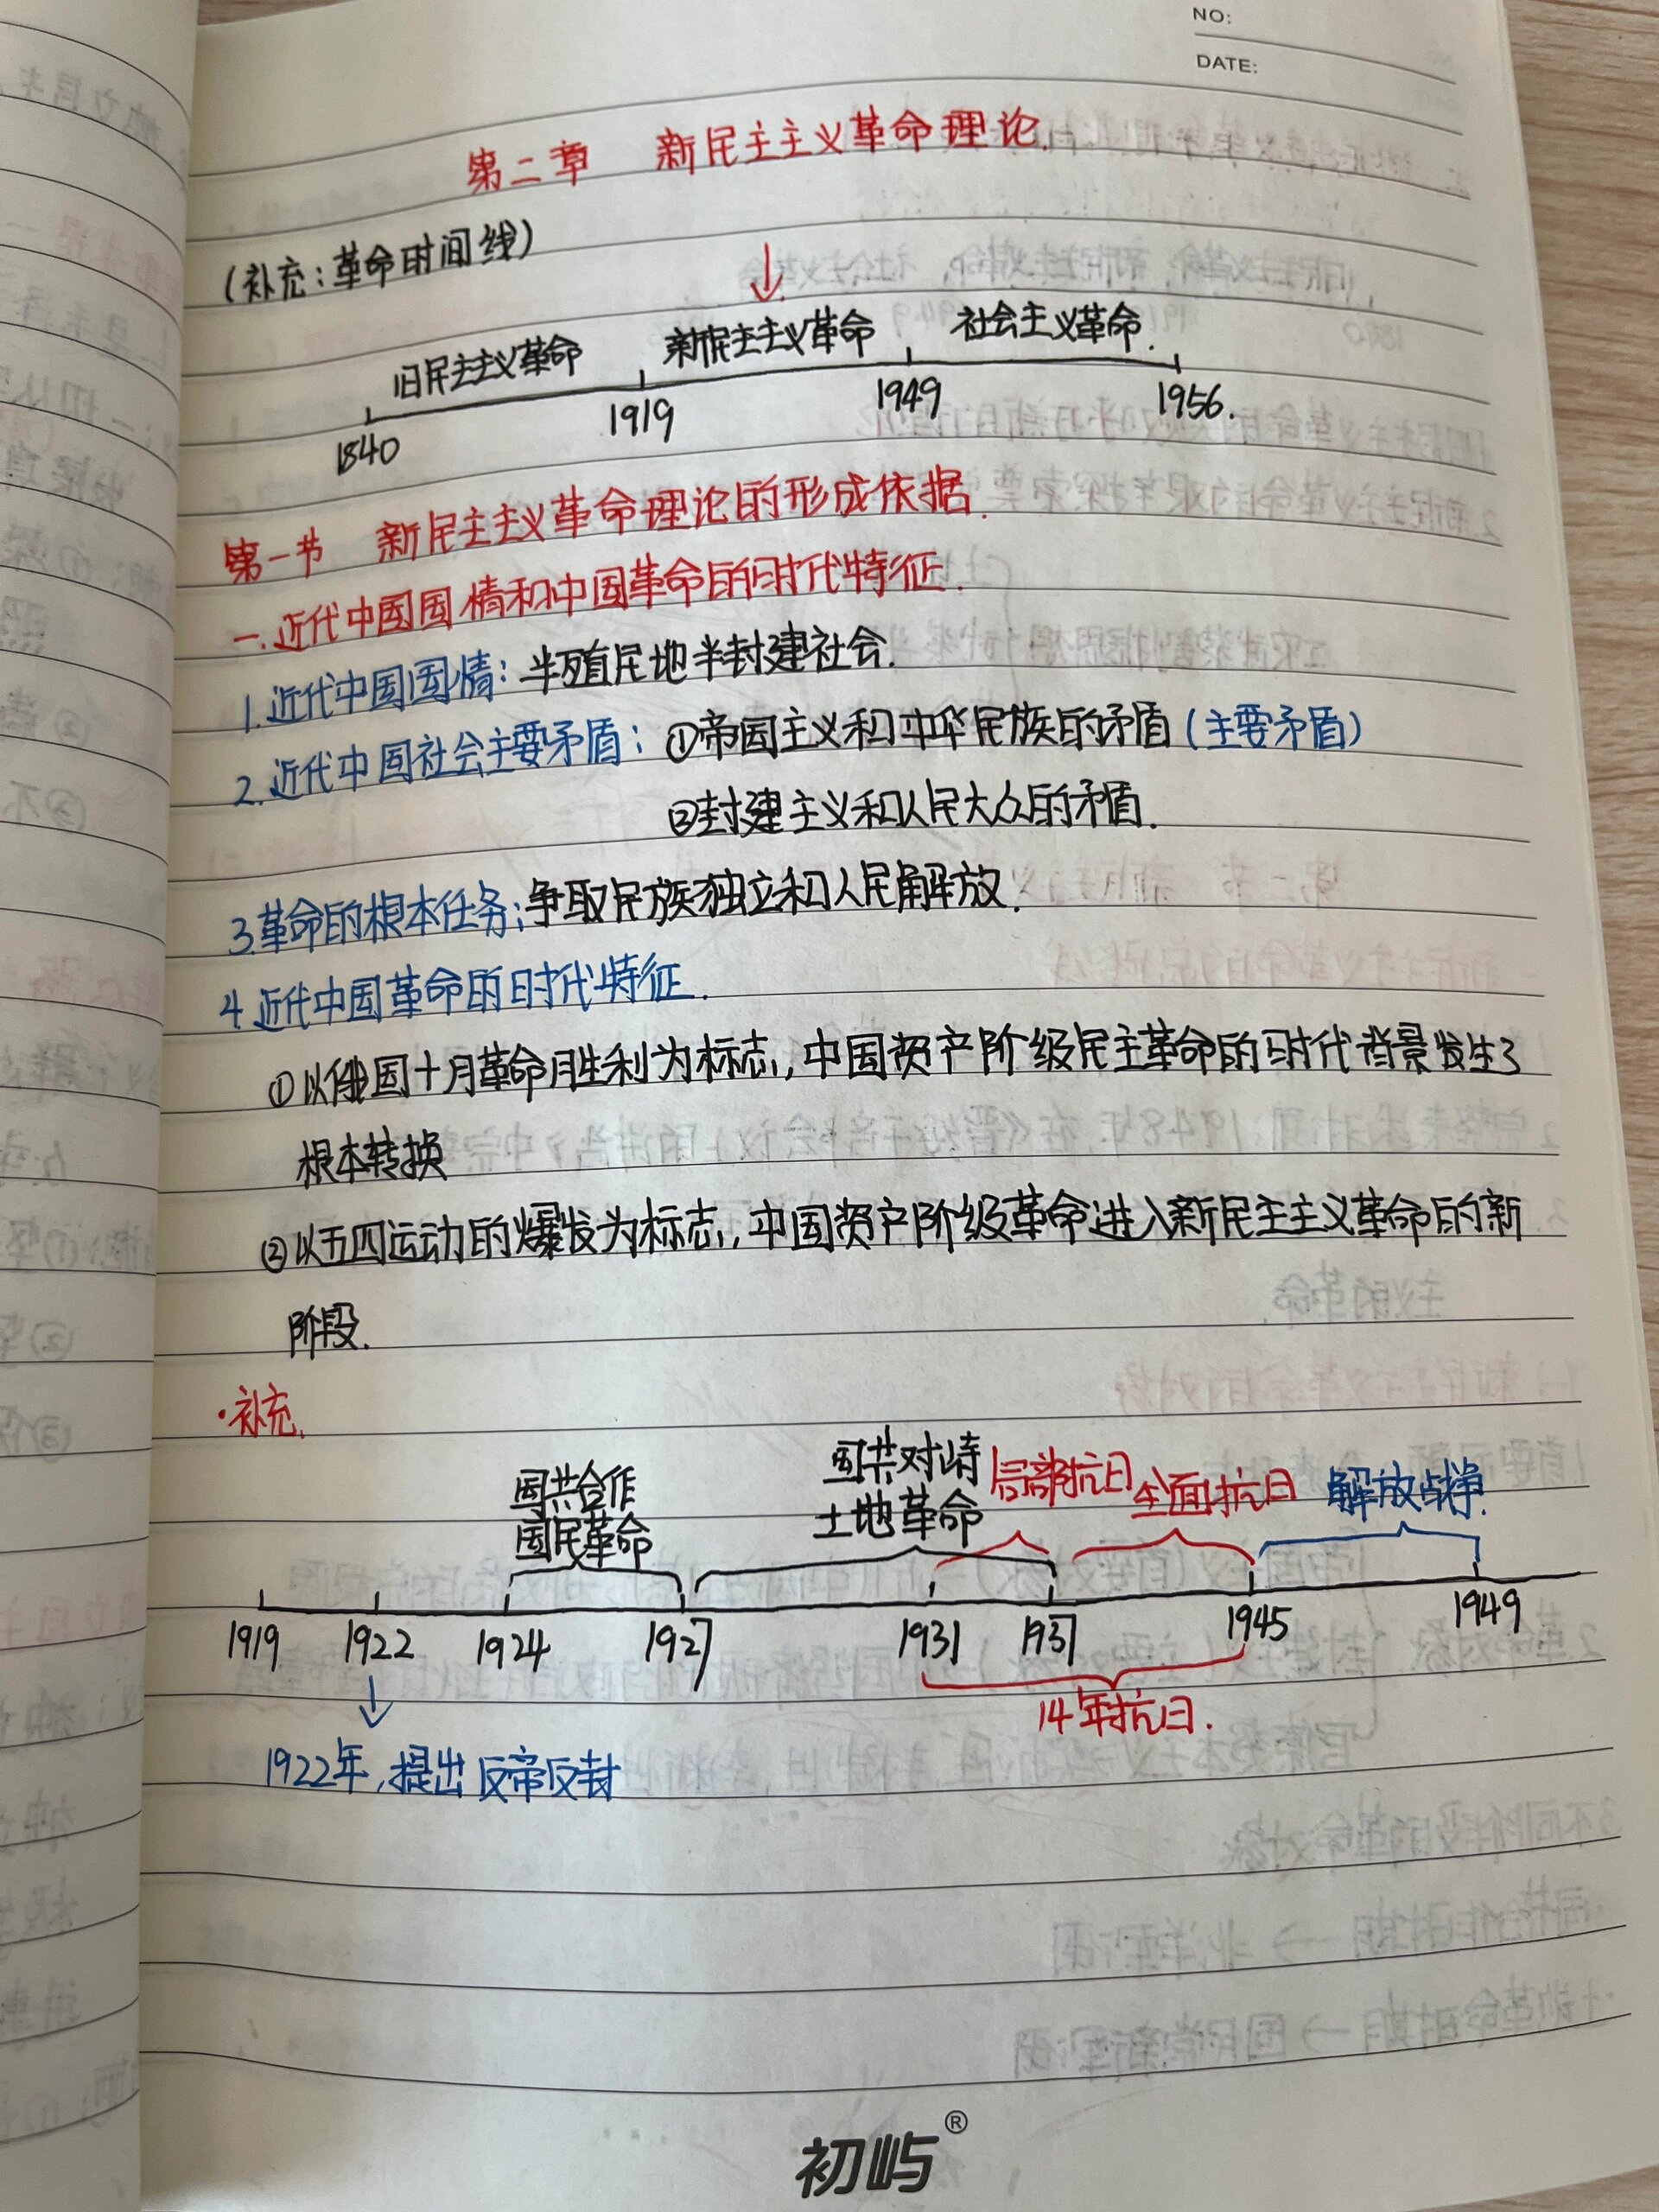 NO:
DATE:
第二章 新民主主义革命理论.
(补充:革命时间线)
↓
旧民主主义革命 新民主主义革命 社会主义革命.
1840 1919 1949 1956.
第一节 新民主主义革命理论的形成依据.
一.近代中国国情和中国革命的时代特征.
1.近代中国国情: 半殖民地半封建社会.
2.近代中国社会主要矛盾: ①帝国主义和中华民族的矛盾(主要矛盾)
②封建主义和人民大众的矛盾.
3.革命的根本任务:争取民族独立和人民解放.
4.近代中国革命的时代特征.
①以俄国十月革命胜利为标志,中国资产阶级民主革命的时代背景发生了
根本转换
②以五四运动的爆发为标志,中国资产阶级革命进入新民主主义革命的新
阶段.
·补充.
国共合作 国共对峙 局部抗日 全面抗日 解放战争.
国民革命 土地革命
1919 1922 1924 1927 1931 1937 1945 1949
↓
14年抗日.
1922年,提出反帝反封
初屿®